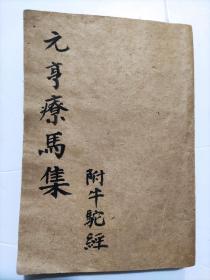 元亨療馬集
附牛駝經